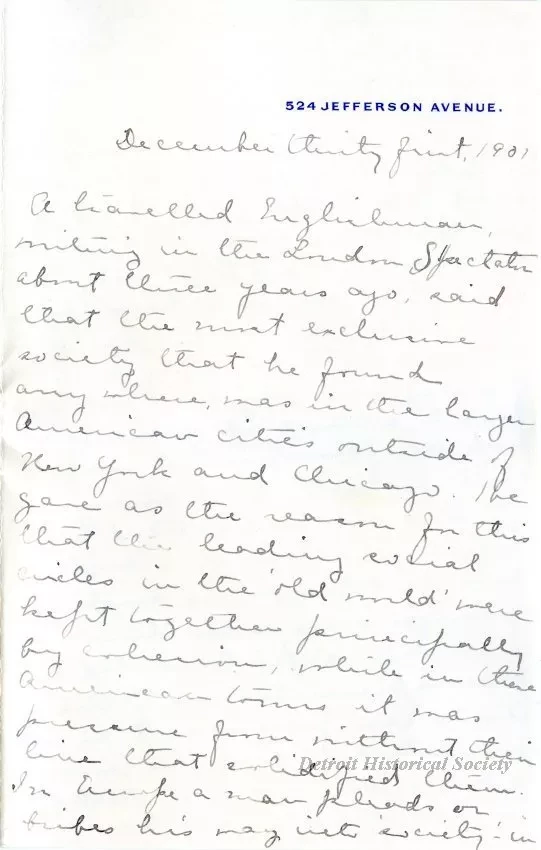 524 JEFFERSON AVENUE.
December thirty first, 1901
A travelled Englishman,
writing in the London Spectator
about three years ago, said
that the most exclusive
society that he found
any where, was in the larger
American cities outside of
New York and Chicago. He
gave as the reason for this
that the leading social
circles in the 'old world' were
kept together principally
by cohesion, while in these
American towns it was
pressure from without their
line that solidified them.
Detroit Historical Society
In Europe a man pleads or
bribes his way into 'society'- in